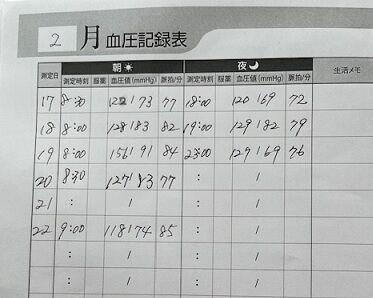 2 月 血圧記録表
朝 夜
測定日 測定時刻 服薬 血圧値(mmHg) 脈拍/分 測定時刻 服薬 血圧値(mmHg) 脈拍/分 生活メモ
17 8:30 122/73 77 18:00 120/69 72
18 8:00 128/83 82 19:00 129/82 79
19 8:00 156/91 84 23:00 127/69 76
20 8:30 127/ 77 : /
21 : / : /
22 9:00 118/74 85 : /
: / : /
: / : /